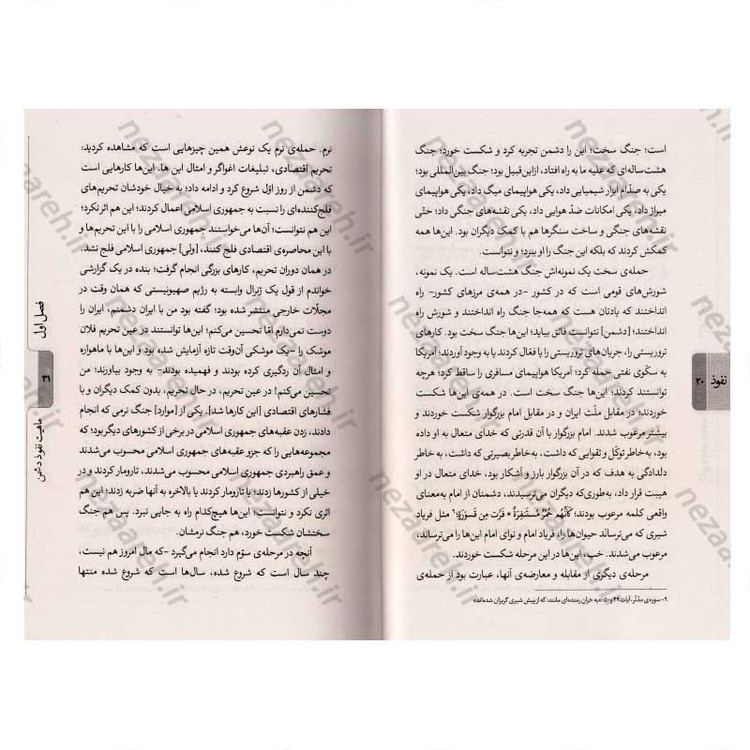 است؛ جنگ سخت؛ این را دشمن تجربه کرد و شکست خورد؛ جنگ
هشت‌ساله‌ای که علیه ما به راه افتاد، از این قبیل بود؛ جنگ بین‌المللی بود؛
یکی به صدّام ابزار شیمیایی داد، یکی هواپیمای میگ داد، یکی هواپیمای
میراژ داد، یکی امکانات ضدّ هوایی داد، یکی نقشه‌های جنگی داد؛ حتّی
نقشه‌های جنگی و ساخت سنگرها هم با کمک دیگران بود. این‌ها همه
کمکش کردند که بلکه این جنگ را او ببرد؛ و نتوانست.
حمله‌ی سخت یک نمونه‌اش جنگ هشت‌ساله است. یک نمونه،
شورش‌های قومی است که در کشور -در همه‌ی مرزهای کشور- راه
انداختند که یادتان هست که همه‌جا جنگ راه انداختند و شورش راه
انداختند؛ [دشمن] نتوانست فائق بیاید؛ این‌ها جنگ سخت بود. کارهای
تروریستی را، جریان‌های تروریستی را یا فعّال کردند یا به وجود آوردند؛ آمریکا
به سکّوی نفتی حمله کرد؛ آمریکا هواپیمای مسافری را ساقط کرد؛ هرچه
توانستند کردند؛ این‌ها جنگ سخت است. در همه‌ی این‌ها شکست
خوردند؛ در مقابل ملّت ایران و در مقابل امام بزرگوار شکست خوردند و
بیشتر مرعوب شدند. امام بزرگوار با آن قدرتی که خدای متعال به او داده
بود، به‌خاطر توکّل و تقوایی که داشت، به‌خاطر بصیرتی که داشت، به‌خاطر
دلدادگی به هدف که در آن بزرگوار بارز و آشکار بود، خدای متعال در او
هیبت قرار داد، به‌طوری‌که دیگران می‌ترسیدند، دشمنان از امام به‌معنای
واقعی کلمه مرعوب بودند؛ کَأَنَّهُم حُمُرٌ مُستَنفِرَةٌ * فَرَّت مِن قَسوَرَةٍ؛۹ مثل فریاد
شیری که می‌ترساند حیوان‌ها را، فریاد امام و نوای امام این‌ها را می‌ترساند،
مرعوب می‌شدند. خب، این‌ها در این مرحله شکست خوردند.
مرحله‌ی دیگری از مقابله و معارضه‌ی آنها، عبارت بود از حمله‌ی
۹- سوره‌ی مدّثّر، آیات ۴۹ و ۵۰؛ «به خران رمنده‌ای مانند؛ که از پیش شیری گریزان شده‌اند»
نفوذ
۳۰
نرم. حمله‌ی نرم یک نوعش همین چیزهایی است که مشاهده کردید:
تحریم اقتصادی، تبلیغات اغواگر و امثال این ها. این‌ها کارهایی است
که دشمن از روز اوّل شروع کرد و ادامه داد؛ به خیال خودشان تحریم‌های
فلج‌کننده‌ای را نسبت به جمهوری اسلامی اعمال کردند؛ این هم اثر نکرد؛
این هم نتوانست؛ آن‌ها می‌خواستند جمهوری اسلامی را با این تحریم‌ها و
با این محاصره‌ی اقتصادی فلج کنند، [ولی] جمهوری اسلامی فلج نشد.
در همان دوران تحریم، کارهای بزرگی انجام گرفت؛ بنده در یک گزارشی
خواندم از قول یک ژنرال وابسته به رژیم صهیونیستی که در همان وقت در
مجلّات خارجی منتشر شده بود؛ گفته بود من با ایران دشمنم، ایران را
دوست نمی‌دارم امّا تحسین می‌کنم؛ این‌ها توانستند در عین تحریم فلان
موشک را -یک موشکی آن‌وقت تازه آزمایش شده بود و این‌ها با ماهواره
و امثال آن ردگیری کرده بودند و فهمیده بودند- به وجود بیاورند؛ من
تحسین می‌کنم! در عین تحریم، در حال تحریم، بدون کمک دیگران و با
فشارهای اقتصادی [این کارها شد]. یکی از [موارد] جنگ نرمی که انجام
دادند، زدن عقبه‌های جمهوری اسلامی در برخی از کشورهای دیگر بود؛ که
مجموعه‌هایی را که جزو عقبه‌های جمهوری اسلامی محسوب می‌شدند
و عمق راهبردی جمهوری اسلامی محسوب می‌شدند، تارومار کردند و در
خیلی از کشورها زدند؛ یا تارومار کردند یا بالاخره به آنها ضربه زدند؛ این هم
اثری نکرد و نتوانست؛ این‌ها هیچ‌کدام راه به جایی نبرد. پس هم جنگ
سختشان شکست خورد، هم جنگ نرمشان.
آنچه در مرحله‌ی سوّم دارد انجام می‌گیرد -که مال امروز هم نیست،
چند سال است که شروع شده، سال‌ها است که شروع شده منتها
فصل اول
۳۱
ماهیت نفوذ دشمن
nezaareh.ir